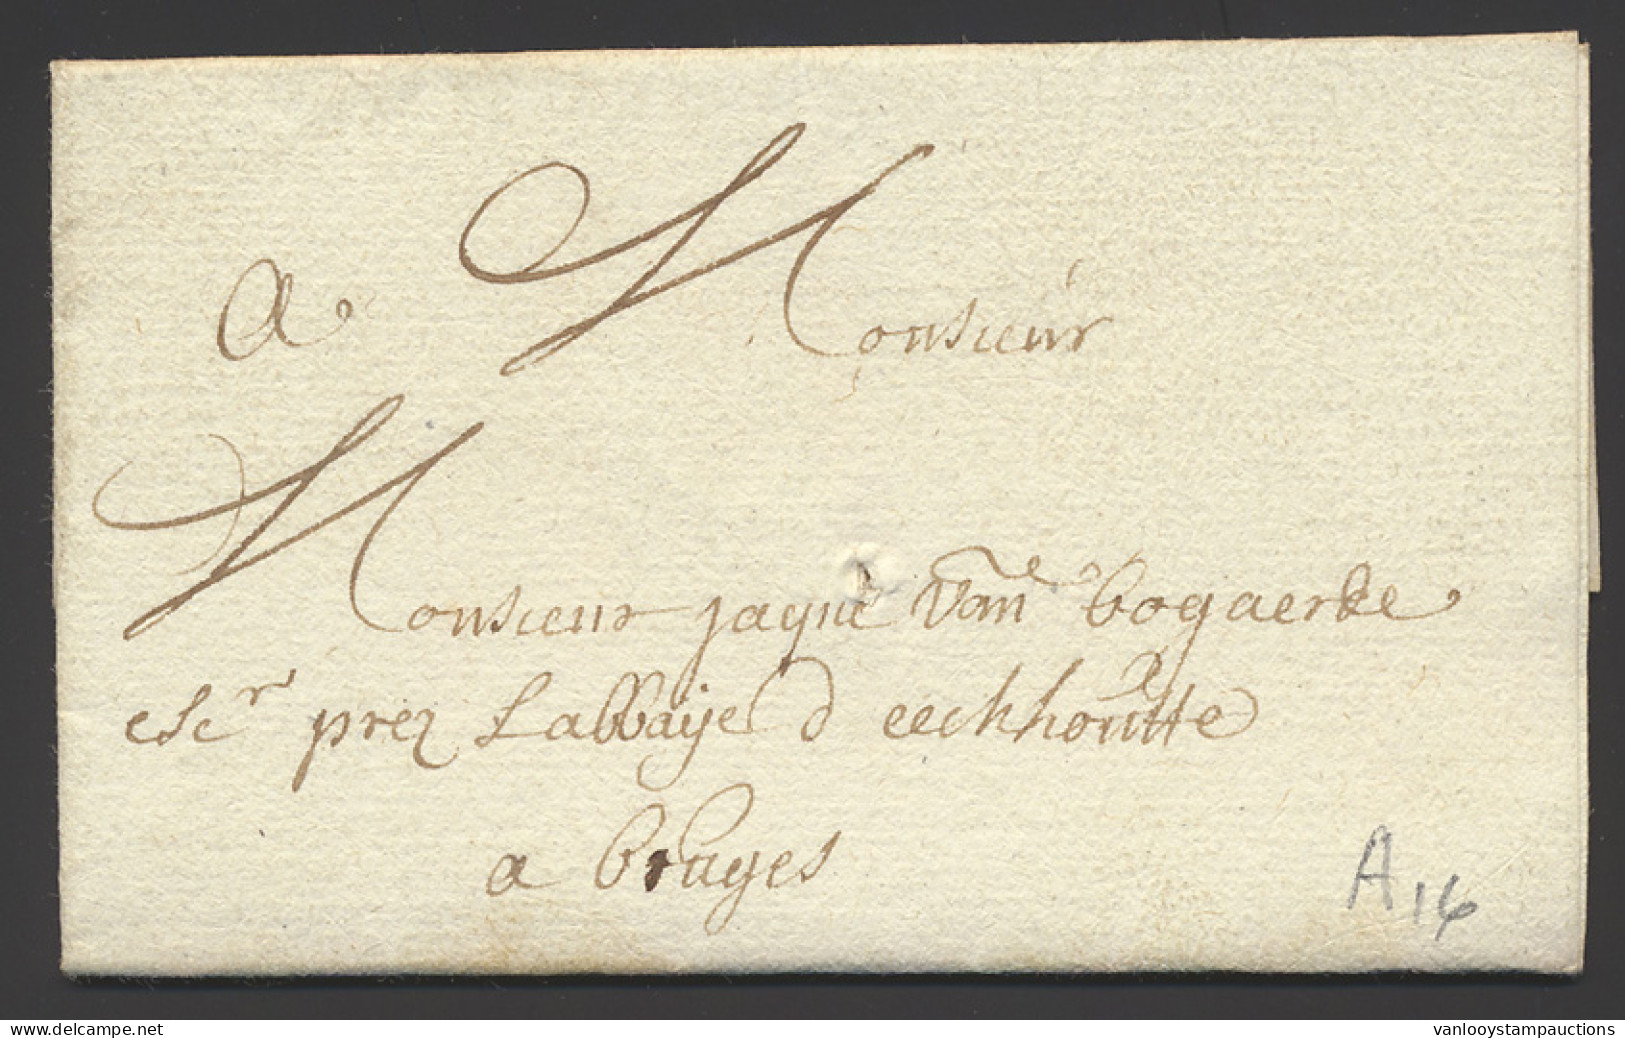 A Monsieur
Monsieur jaque van bogaerde
escr prez Labbaije d eeckhoutte
a bruges
A 16
www.delcampe.net
vanlooystampauctions